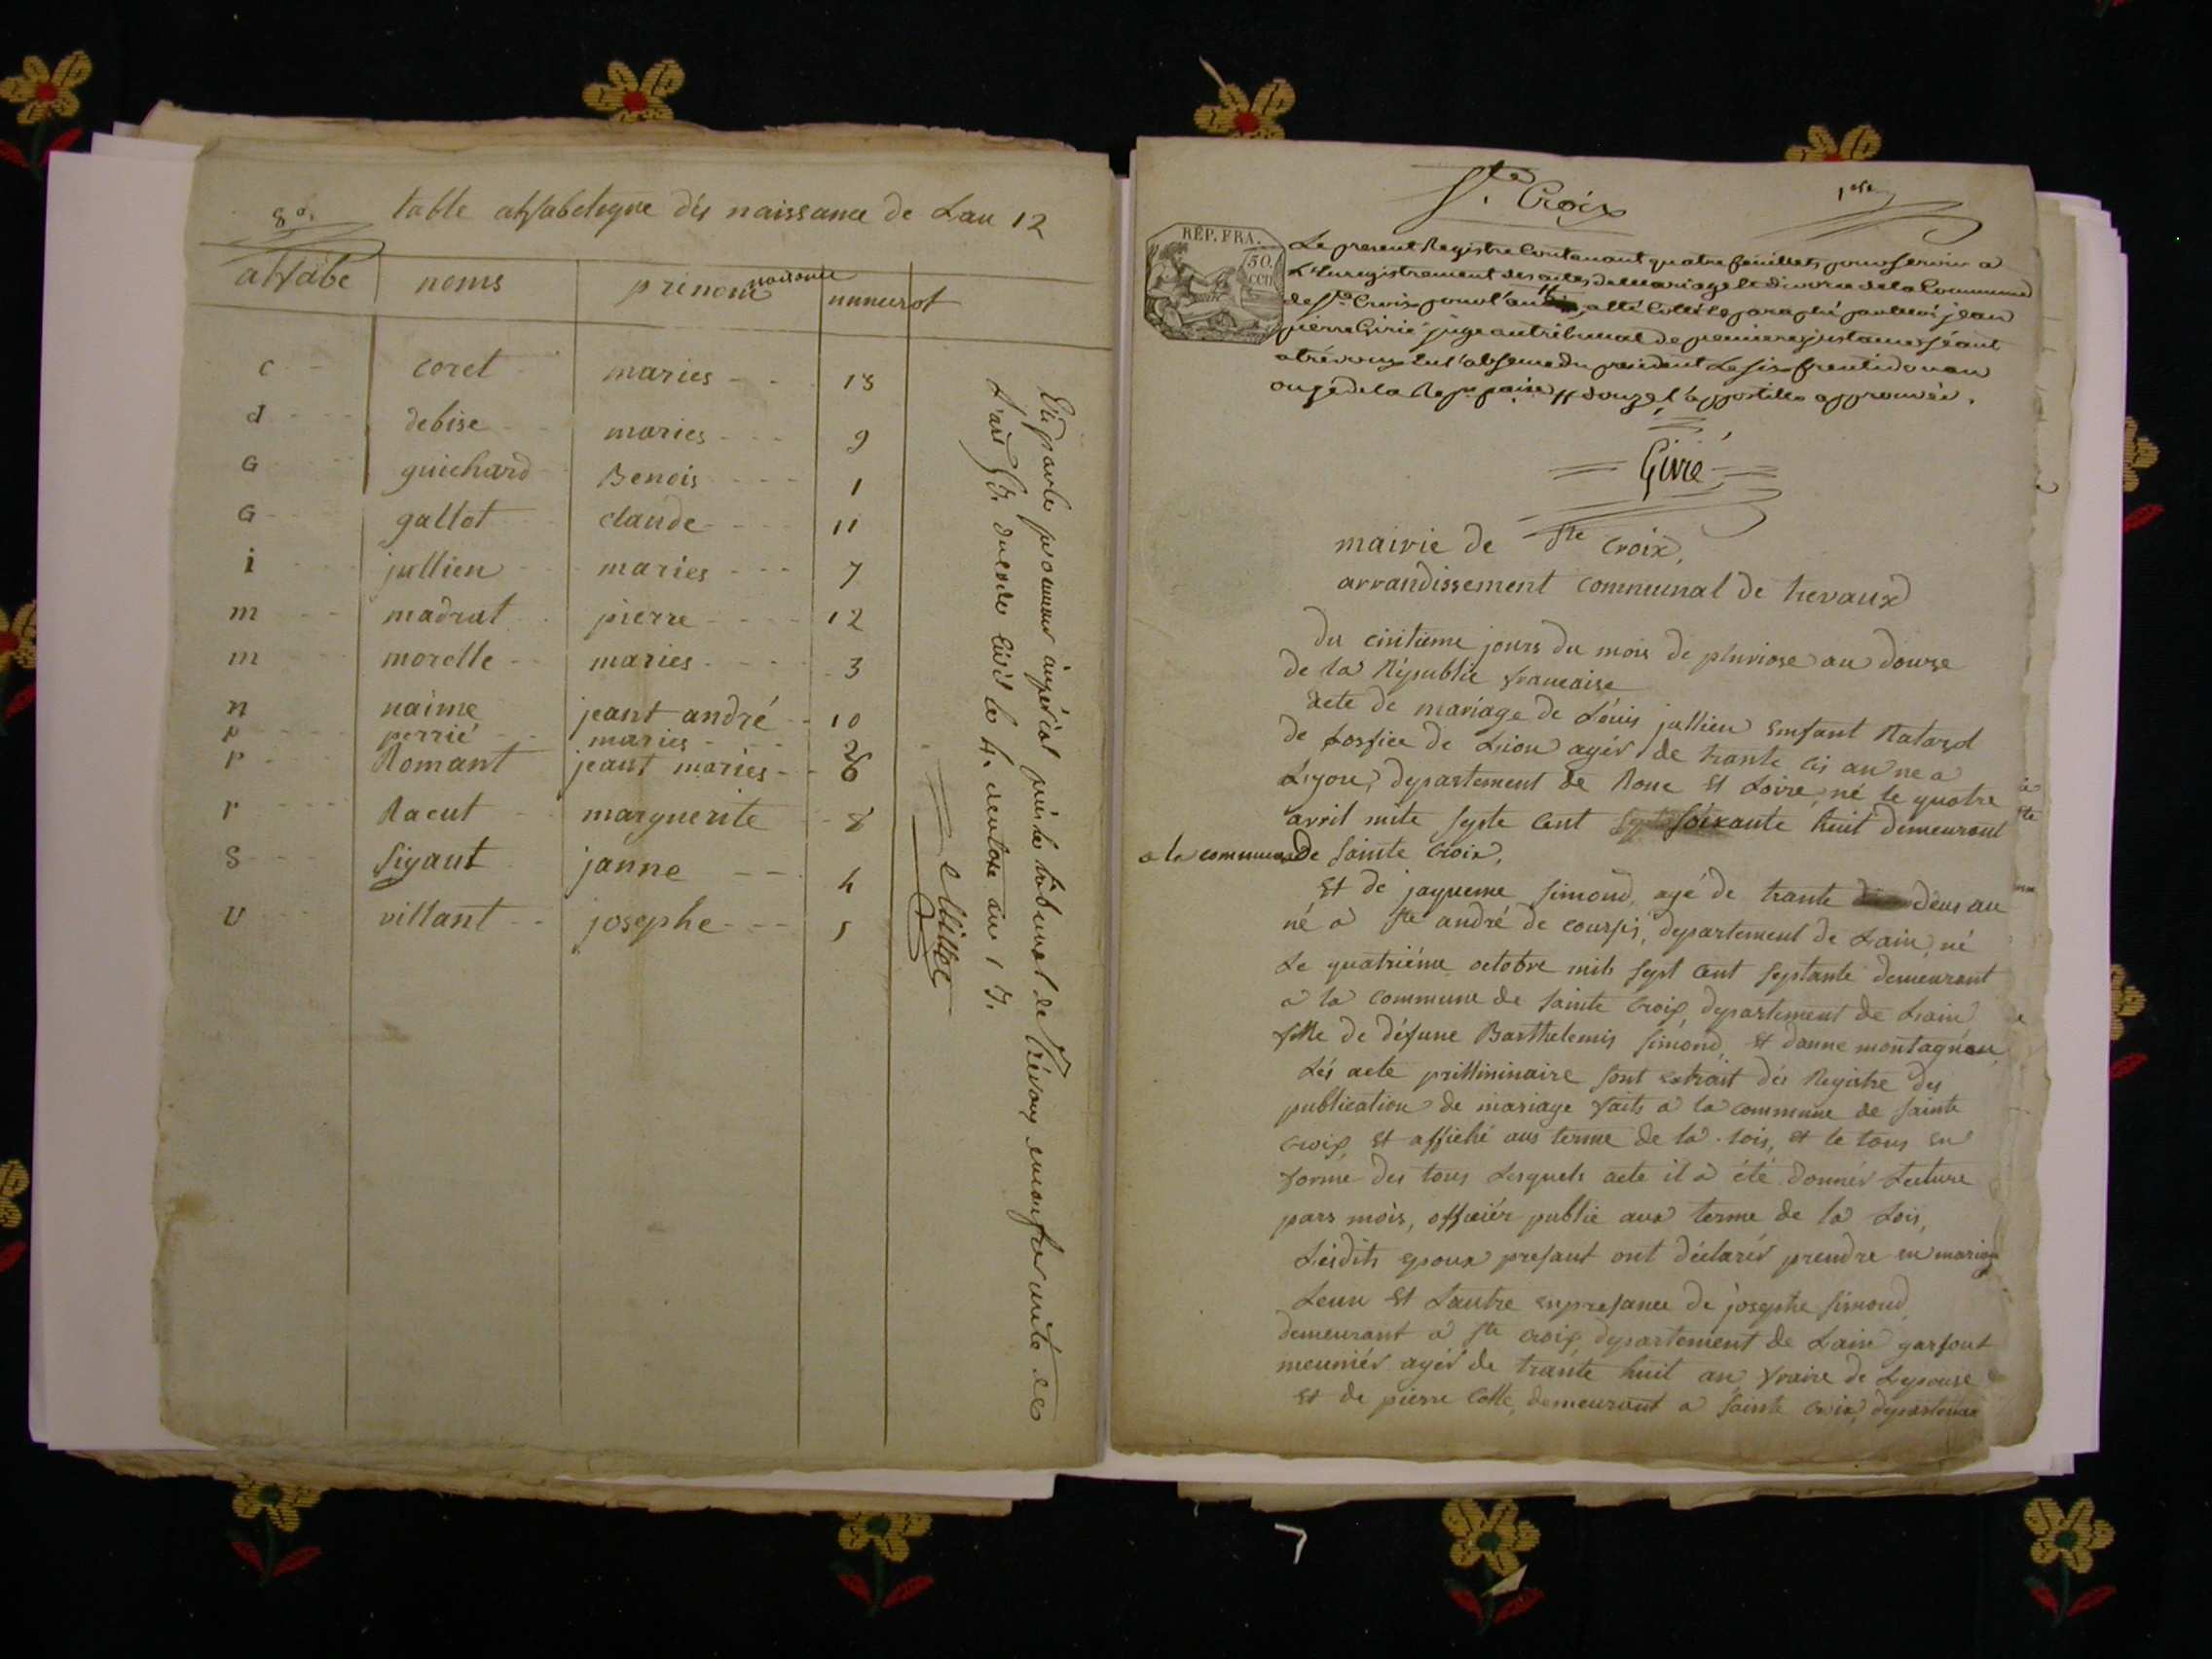 8e.
table alfabetique dés naissance de Lan 12
alfabe noms prenom naissance numerot
c coret maries 13
d debise maries 9
G guichard Benois 1
G gallot claude 11
i jullien maries 7
m madrat pierre 12
m morelle maries 3
n naime jeant andré 10
p perrié maries 2
r Romant jeant maries 6
r Racut marguerite 8
S sigaut janne 4
v villant josephe 5
procureur impérial près le tribunal de Trévoux en conformité de
L'art 53. du code Civil le 4. ventose an 13.
Ste Croix
1er
REP. FRA.
50.
CEN
Le present Registre Contenant quatre feuillets pour servir a
L'Enregistrement des actes de Mariage et divorce de la Commune
de Ste Croix pour l'an a été Cotté et paraphé par Moi jean
pierre Girié juge au tribunal de premiere instance séant
a trévoux En l'absence du president Le six fructidor an
onze de la Repque // douze l'appostille approuvée.
Girié
mairie de Ste Croix,
arrandissement communal de trevaux
du cintieme jours du mois de pluviose an douze
de la Républic francaise
acte de mariage de Louis jullien Enfant Natard
de Losfice de Lion agér de trante cis an ne a
Lyon, departement de Rone Et Loire, né le quatre
avril mile sept cent soixante huit demeurant
a la commune de sainte Croix,
Et de jaqueme simond, agé de trante deus an
né a Ste andré de coursis, departement de Lain, né
Le quatriéme octobre mils sept Cent septante demeurant
a la commune de sainte Croix, departement de Lain
fille de défune Barthelemis simond, Et danne montagnou
Lés acte prilliminaire sont extrait dés Registre des
publication de mariage faits a la commune de sainte
croix Et affiché aus terme de la lois, et le tous en
forme des tous Lesquels acte il a été donnér Lecture
pars mois, officiér public aux terme de la Lois,
Lésdits epoux presant ont déclarér prendre en mariage
Leun Et Lautre enpresance de josephe simond
demeurant a Ste croix departement de Lain garsont
meuniér agér de trante huit an fraire de Lepouse
Et de pierre Colle, demeurant a sainte Croix, departemen